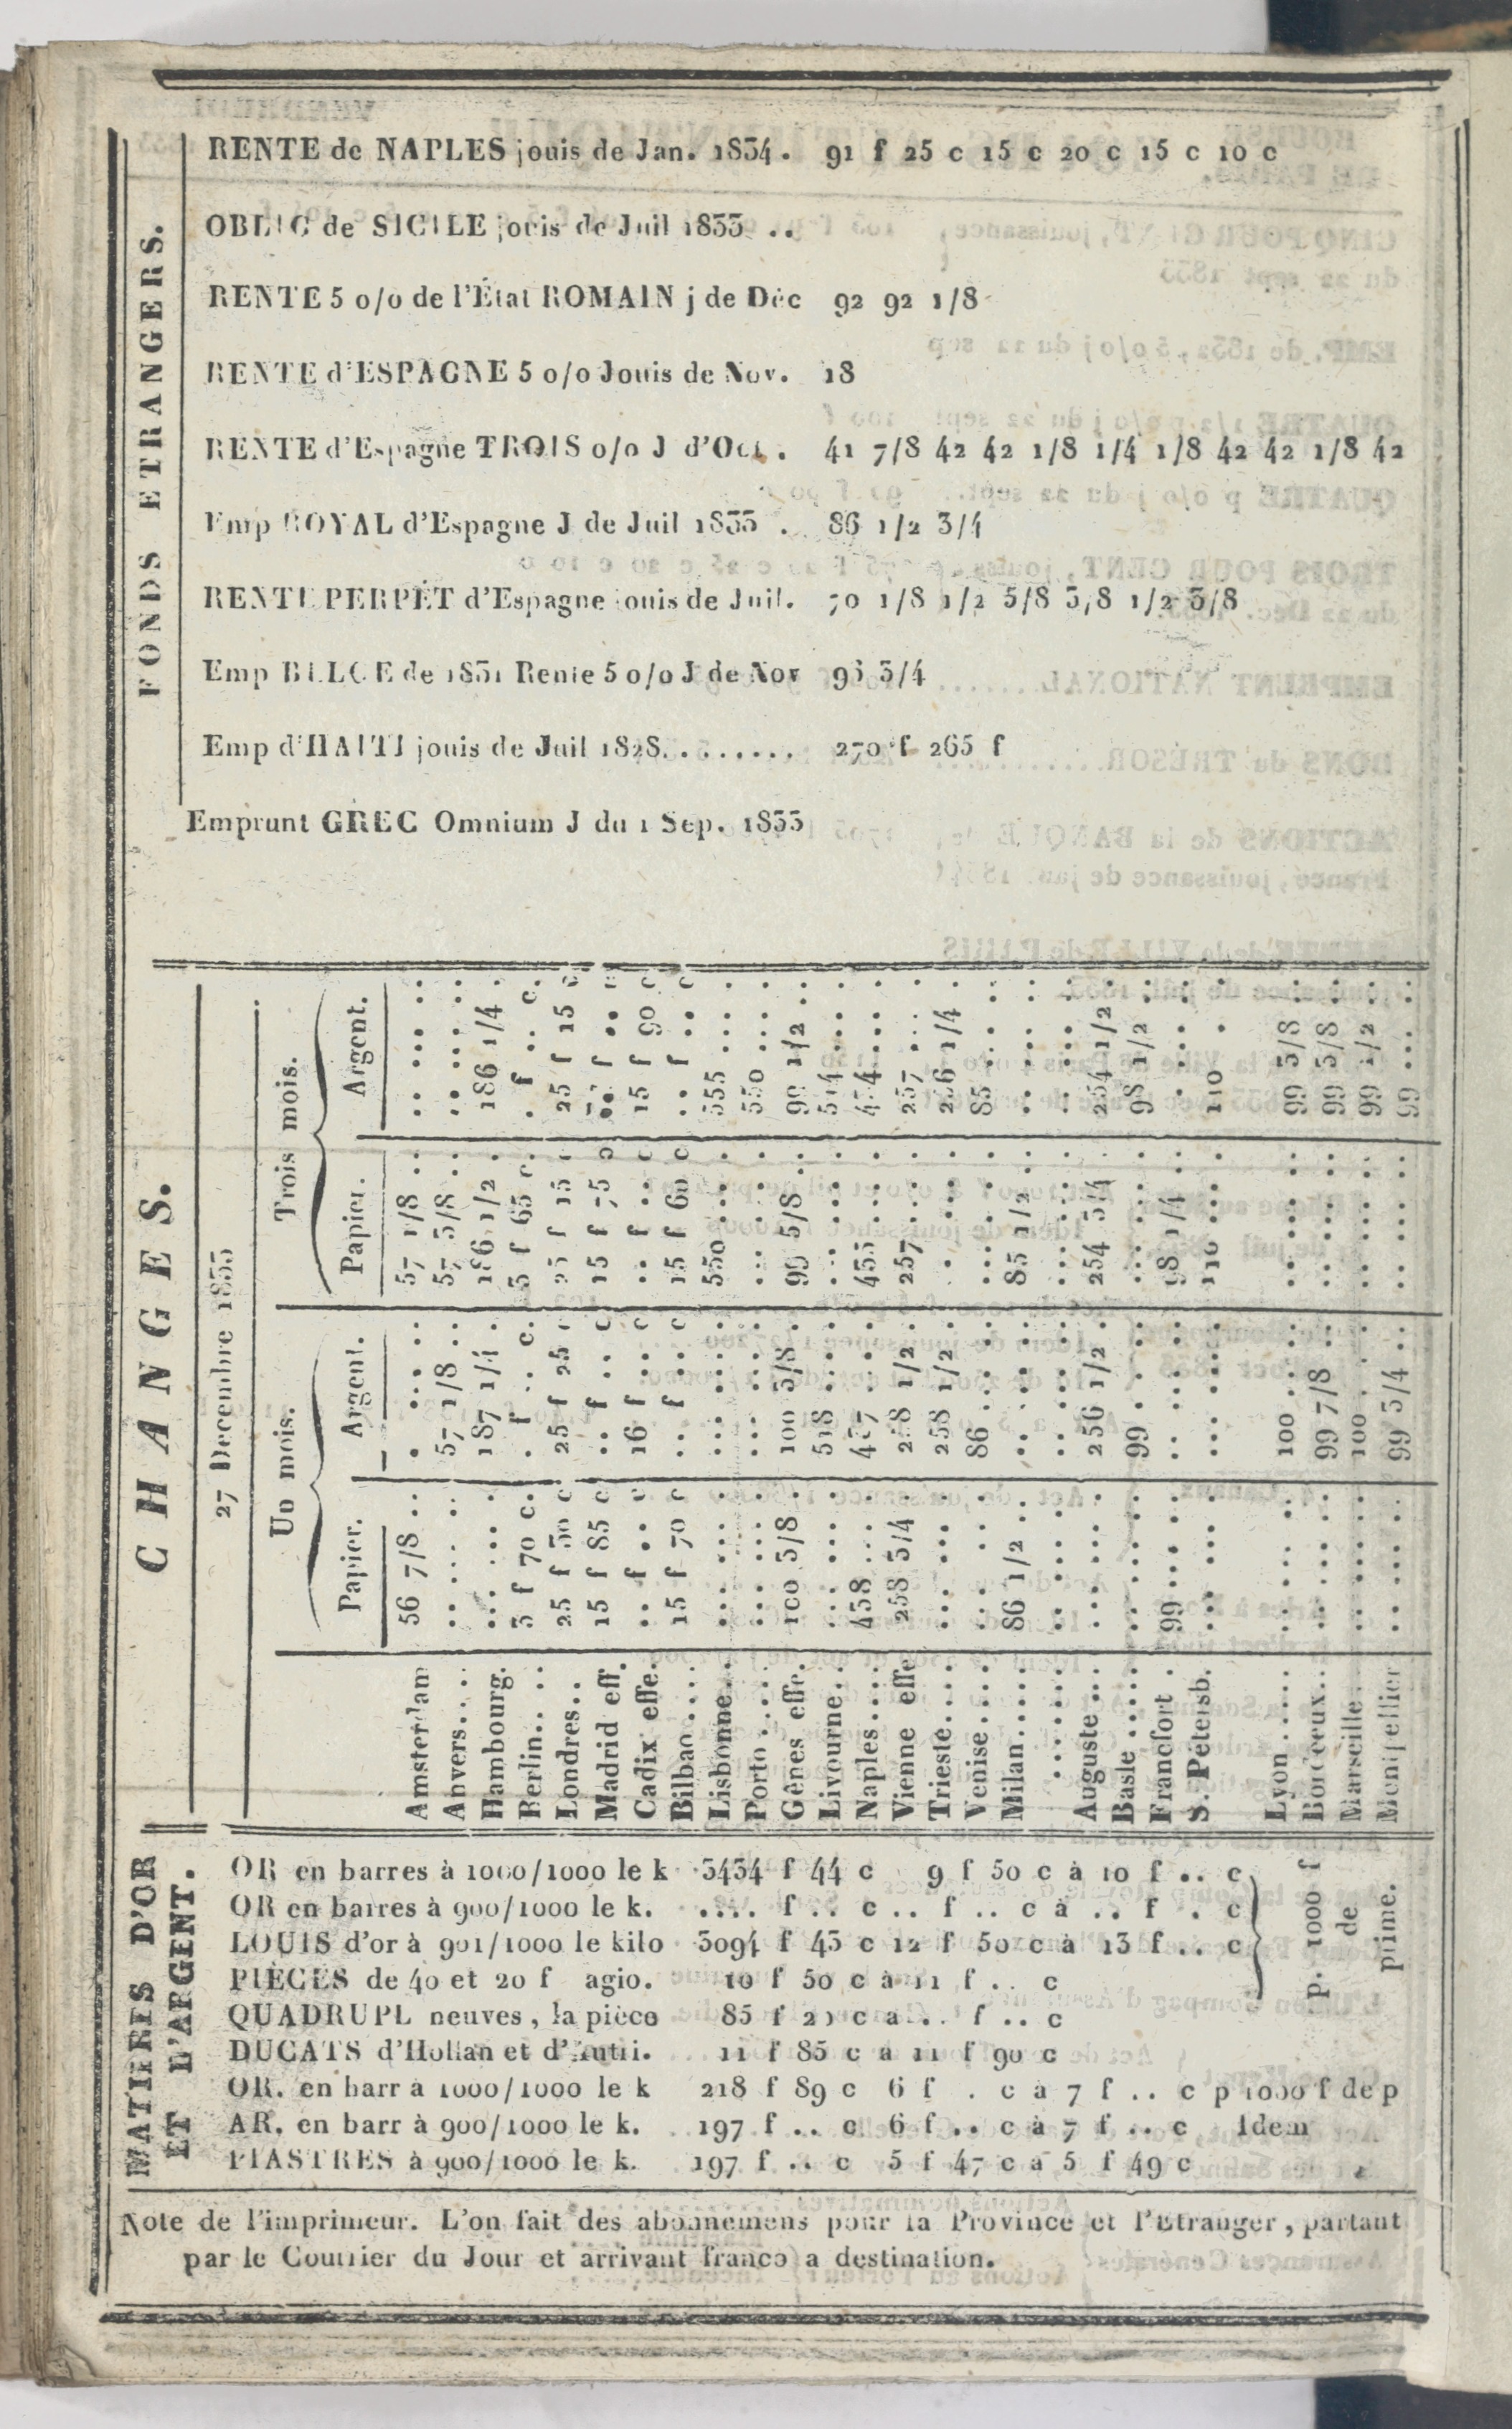 FONDS ETRANGERS.
RENTE de NAPLES jouis de Jan. 1834. 91 f 25 c 15 c 20 c 15 c 10 c
OBLIG de SICILE jouis de Juil 1833 ..
RENTE 5 o/o de l'État ROMAIN j de Déc 92 92 1/8
RENTE d'ESPAGNE 5 o/o Jouis de Nov. 18
RENTE d'Espagne TROIS o/o J d'Oct . 41 7/8 42 42 1/8 1/4 1/8 42 42 1/8 42
Emp ROYAL d'Espagne J de Juil 1833 . 86 1/2 3/4
RENTE PERPÉT d'Espagne jouis de Juil. 70 1/8 1/2 5/8 3/8 1/2 3/8
Emp BELGE de 1831 Rente 5 o/o J de Nov 96 3/4
Emp d'HAITI jouis de Juil 1828........ 270 f 265 f
Emprunt GREC Omnium J du 1 Sep. 1833
CHANGES.
27 Decembre 1833
Un mois. Trois mois.
Papier. Argent. Papier. Argent.
Amsterdam 56 7/8 .. . .... .. 57 1/8 .. .. .... ..
Anvers.... .. .... .. 57 1/8 .. 57 3/8 .. .. .... ..
Hambourg. ... ... . 187 1/4 . 186 1/2 . 186 1/4 .
Berlin.... 3 f 70 c. . f .. c. 3 f 65 c. . f .. c.
Londres... 25 f 30 c 25 f 25 c 25 f 15 c 25 f 15 c
Madrid eff. 15 f 85 c .. f .. c 15 f 75 c
Cadix effe. .. f .. c 16 f .. c .. f .. c 15 f 90 c
Bilbao.... 15 f 70 c .. f .. c 15 f 60 c .. f .. c
Lisbonne.. ... .... . ... .... . 550 .... . 555 ... .
Porto..... ... .... . ... .... . ... .... . 550 ... .
Gênes effe. 100 3/8 . 100 3/8 . 99 5/8 . 99 1/2 .
Livourne.. ... .... . 518 ... . ... .... . 514 ... .
Naples.... 438 ... . 437 .. . 435 ... . 434 ... .
Vienne effe 258 3/4 . 258 1/2 . 257 ... . 257 ... .
Trieste.... ... ... . 258 1/2 . . 256 1/4 .
Venise.... ... . . 86 .. . ... ... . 85 .. .
Milan...... 86 1/2 . .. ... . 85 1/2 . .. ... .
Auguste ... .. ... . 256 1/2 . 254 3/4 . 254 1/2 .
Basle ..... .. ... . 99 . .. . ... ... . 98 1/2 .
Francfort . 99 ... . .. ... . 98 1/4 . . ... .
S. Petersb. .. ... . ... ... . 110 .. . 110 .
Lyon ...... .. ... .. 100 ... .. .. ... .. 99 3/8 ..
Bordeaux... .. ... .. 99 7/8 .. .. ... .. 99 3/8 ..
Marseille .. .. ... .. 100 . .. .. ... .. 99 1/2 ..
Montpellier .. ... .. 99 3/4 .. .. ... .. 99 ... ..
MATIERES D'OR
ET D'ARGENT.
OR en barres à 1000/1000 le k 3434 f 44 c 9 f 50 c à 10 f .. c
OR en barres à 900/1000 le k. .... f .. c .. f .. c à .. f . c
LOUIS d'or à 901/1000 le kilo 3094 f 43 c 12 f 50 c à 13 f .. c
PIÈCES de 40 et 20 f agio. 10 f 50 c à 11 f .. c
p. 1000 f
de
prime.
QUADRUPL neuves, la pièce 85 f 20 c a .. f .. c
DUCATS d'Hollan et d'Autri. 11 f 85 c a 11 f 90 c
OR. en barr a 1000/1000 le k 218 f 89 c 6 f . c à 7 f .. c p 1000 f de p
AR. en barr à 900/1000 le k. 197 f .. c 6 f .. c à 7 f .. c Idem
PIASTRES à 900/1000 le k. 197 f .. c 5 f 47 c a 5 f 49 c
Note de l'imprimeur. L'on fait des abonnemens pour la Province et l'Etranger, partant
par le Courrier du Jour et arrivant franco a destination.